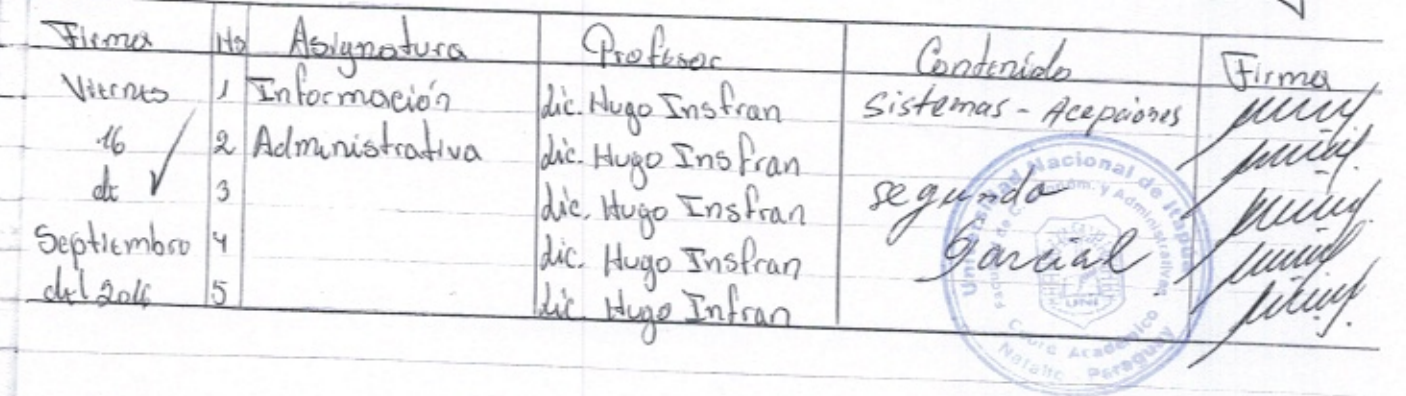 Firma Hs Asignatura Profesor Contenido Firma
Viernes 1 Información Lic. Hugo Insfran Sistemas - Acepciones
16 2 Administrativa Lic. Hugo Insfran
de 3 Lic. Hugo Insfran segundo
Septiembre 4 Lic. Hugo Insfran Parcial
del 2016 5 Lic. Hugo Infran
Universidad Nacional de Itapúa
Facultad de Cienc. Econom. y Administrativas
UNI
Centro Académico
Natalio Paraguay